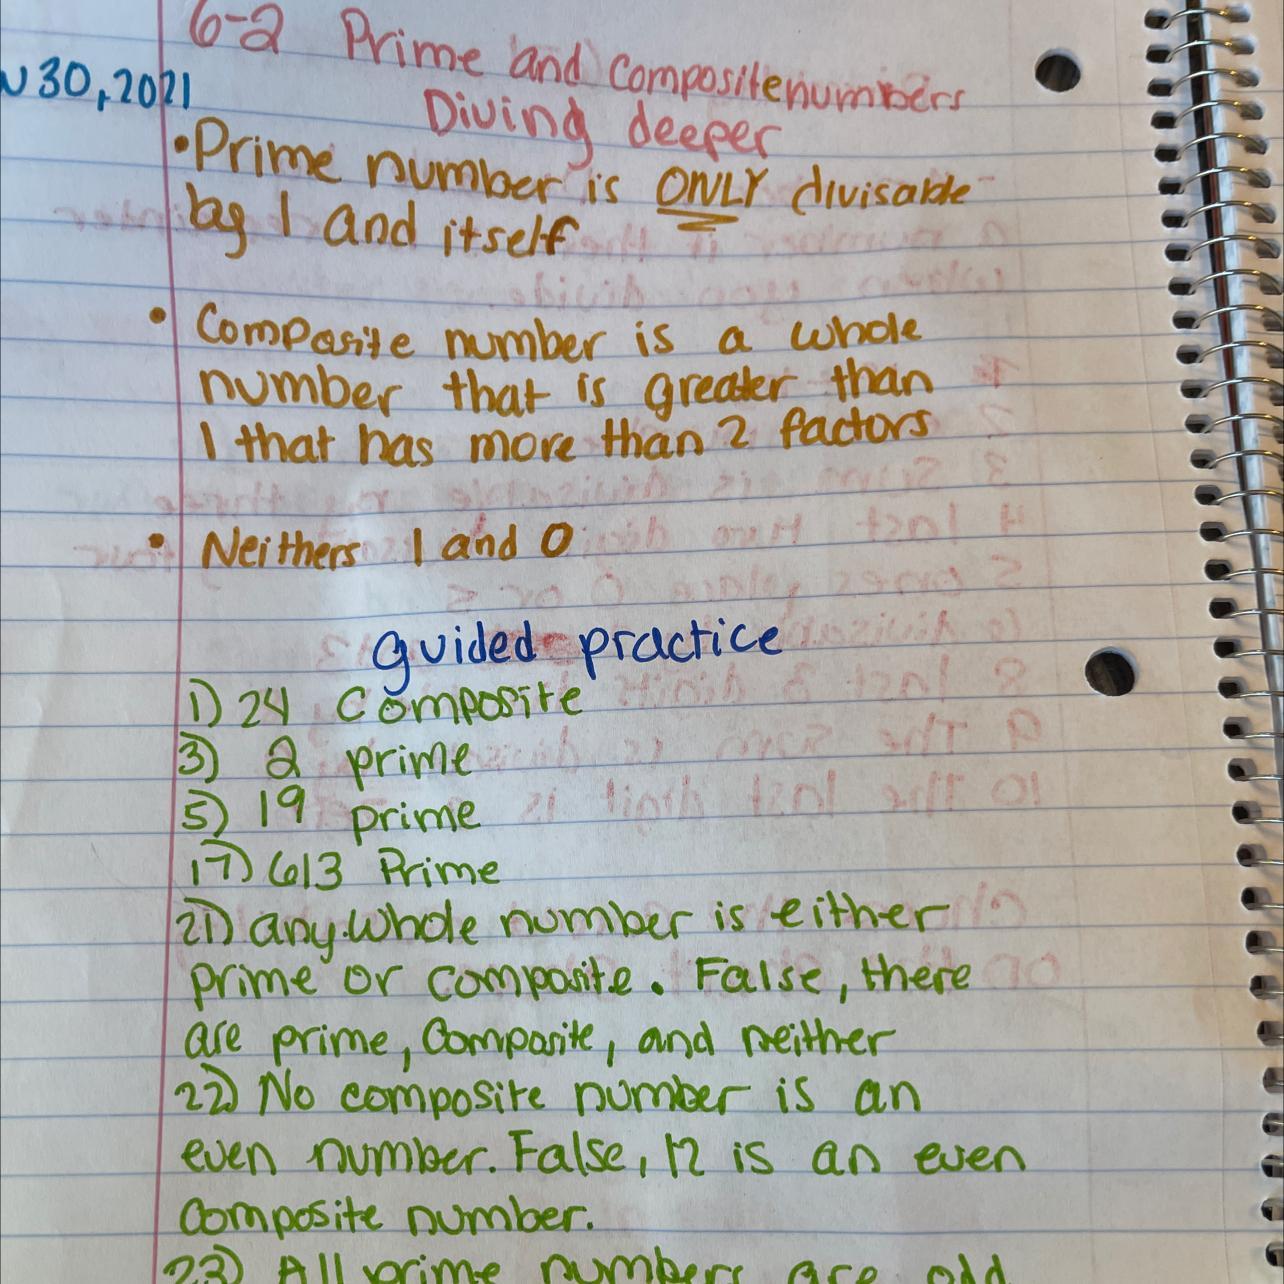 6-2 Prime and Composite numbers
30, 2021
Diving deeper
• Prime number is ONLY divisable
by 1 and itself
• Composite number is a whole
number that is greater than
1 that has more than 2 factors
• Neithers 1 and 0
guided practice
1) 24 Composite
3) 2 prime
5) 19 prime
17) 613 Prime
21) any whole number is either
prime or composite. False, there
are prime, Composite, and neither
22) No composite number is an
even number. False, 12 is an even
composite number.
23) All prime numbers are odd